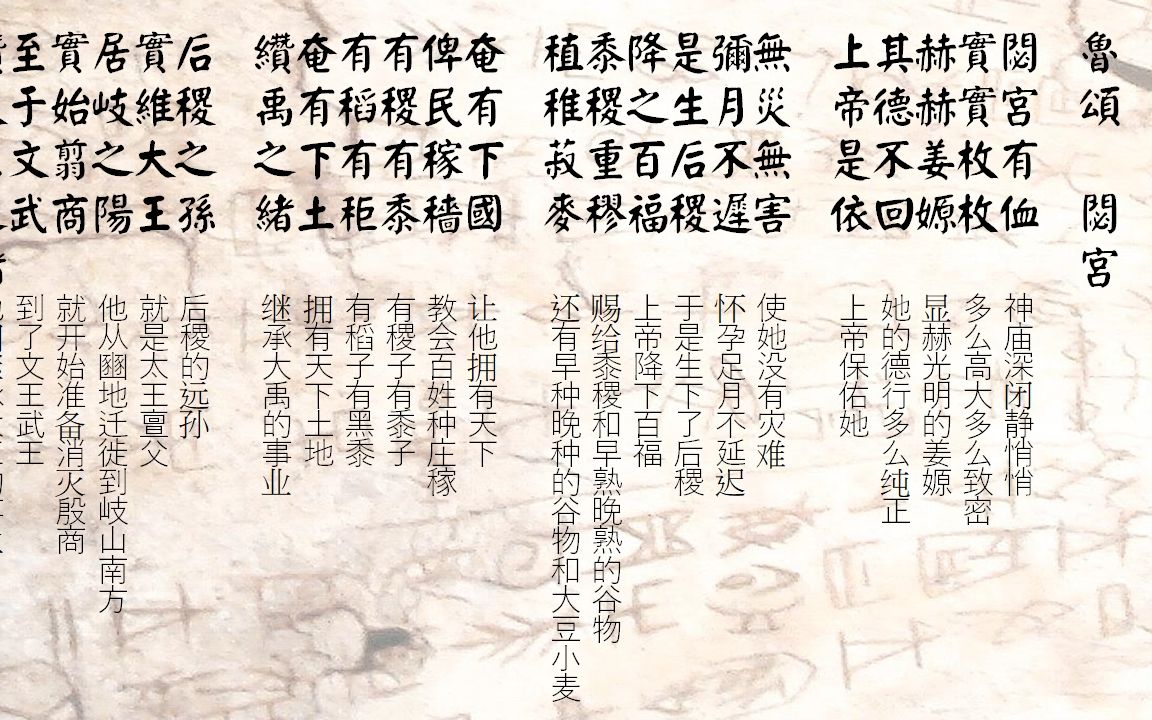 魯頌　閟宮
閟宮有侐
實實枚枚
赫赫姜嫄
其德不回
上帝是依
無災無害
彌月不遲
是生后稷
降之百福
黍稷重穋
植稚菽麥
奄有下國
俾民稼穡
有稷有黍
有稻有秬
奄有下土
纘禹之緒
后稷之孫
實維大王
居岐之陽
實始翦商
至于文武
神庙深闭静悄悄
多么高大多么致密
显赫光明的姜嫄
她的德行多么纯正
上帝保佑她
使她没有灾难
怀孕足月不延迟
于是生下了后稷
上帝降下百福
赐给黍稷和早熟晚熟的谷物
还有早种晚种的谷物和大豆小麦
让他拥有天下
教会百姓种庄稼
有稷子有黍子
有稻子有黑黍
拥有天下土地
继承大禹的事业
后稷的远孙
就是太王亶父
他从豳地迁徙到岐山南方
就开始准备消灭殷商
到了文王武王